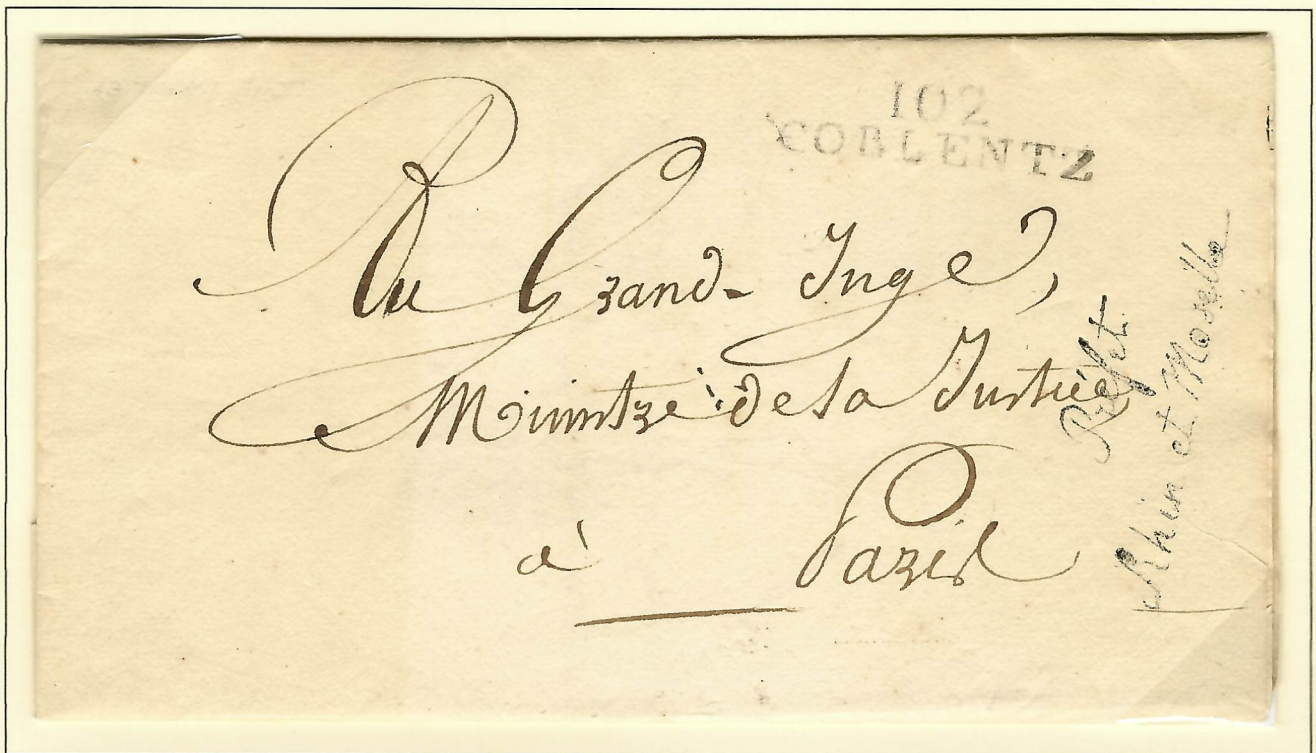 102
COBLENTZ
Au Grand-Juge,
Ministre de la Justice,
à Paris
Préfet
Rhin et Moselle